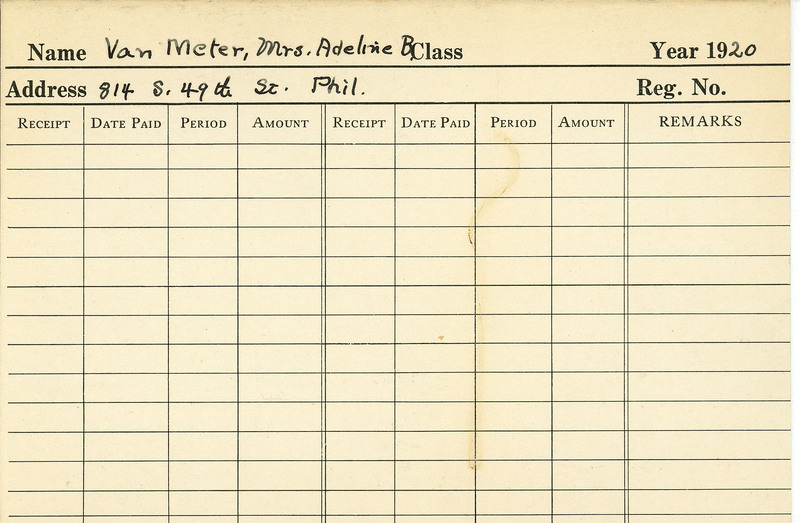 Name Van Meter, Mrs. Adeline B. Class Year 1920
Address 814 S. 49th St. Phil. Reg. No.
RECEIPT DATE PAID PERIOD AMOUNT RECEIPT DATE PAID PERIOD AMOUNT REMARKS